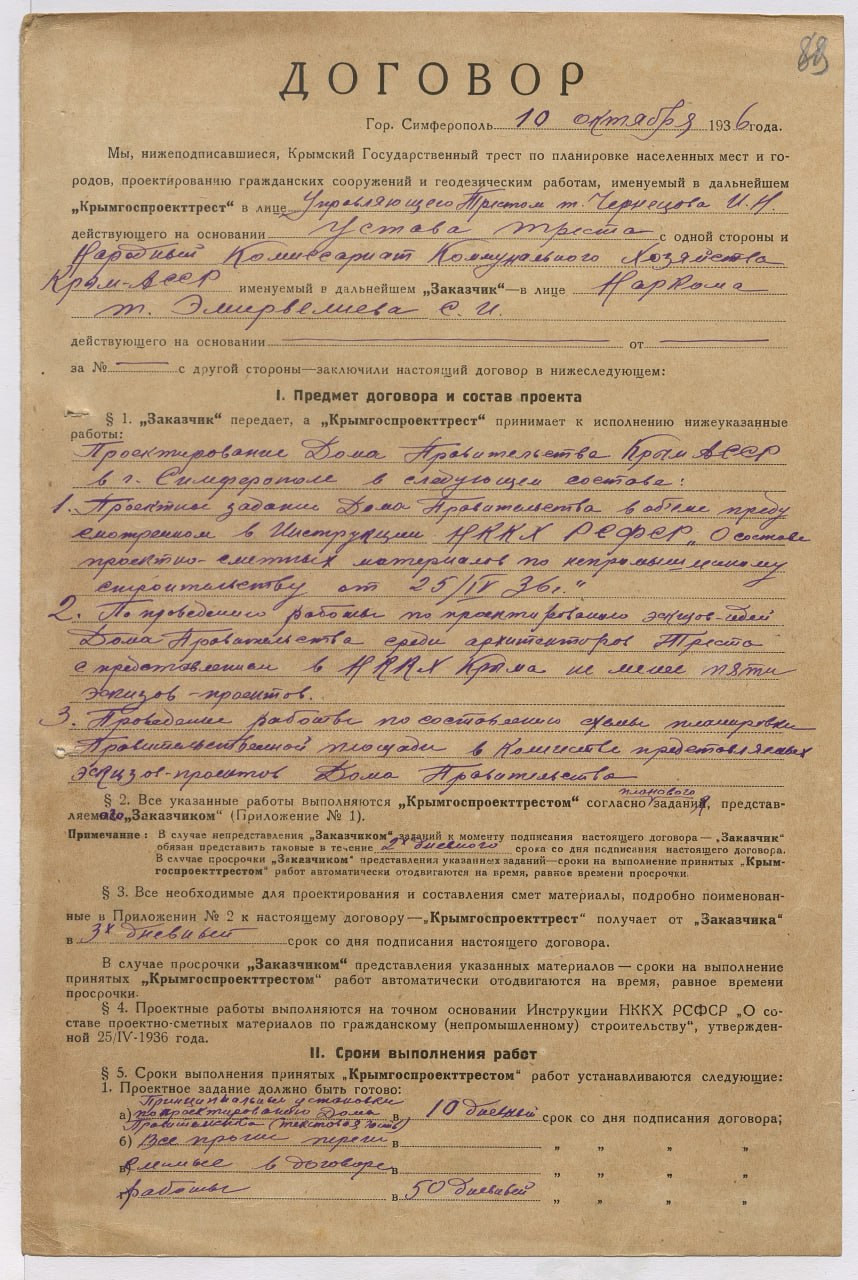 88
ДОГОВОР
Гор. Симферополь 10 октября 1936 года.
Мы, нижеподписавшиеся, Крымский Государственный трест по планировке населенных мест и го-
родов, проектированию гражданских сооружений и геодезическим работам, именуемый в дальнейшем
„Крымгоспроекттрест“ в лице Управляющего Трестом т. Чернецова И. Н.
действующего на основании Устава треста с одной стороны и
Народный Комиссариат Коммунального Хозяйства
Крым-АССР именуемый в дальнейшем „Заказчик“—в лице Наркома
т. Эмирвелиева С. И.
действующего на основании от
за № с другой стороны—заключили настоящий договор в нижеследующем:
I. Предмет договора и состав проекта
§ 1. „Заказчик“ передает, а „Крымгоспроекттрест“ принимает к исполнению нижеуказанные
работы:
Проектирование Дома Правительства Крым АССР
в г. Симферополе в следующем составе:
1. Проектное задание Дома Правительства в объеме преду
смотренном в Инструкции НККХ РСФСР „О составе
проектно-сметных материалов по непромышленому
строительству от 25/IV 36г.“
2. По проведению работы по проектированию эскизов-идей
Дома Правительства среди архитекторов Треста
с представлением в НККХ Крыма не менее пяти
эскизов-проектов.
3. Проведение работы по составлению схемы планировки
Правительственной площади в количестве представляемых
эскизов-проектов Дома Правительства
§ 2. Все указанные работы выполняются „Крымгоспроекттрестом“ согласно планового задания, представ-
ляемого „Заказчиком“ (Приложение № 1).
Примечание: В случае непредставления „Заказчиком“ заданий к моменту подписания настоящего договора — „Заказчик“
обязан представить таковые в течение 2х дневного срока со дня подписания настоящего договора.
В случае просрочки „Заказчиком“ представления указанных заданий—сроки на выполнение принятых „Крым-
госпроекттрестом“ работ автоматически отодвигаются на время, равное времени просрочки.
§ 3. Все необходимые для проектирования и составления смет материалы, подробно поименован-
ные в Приложении № 2 к настоящему договору—„Крымгоспроекттрест“ получает от „Заказчика“
в 3х дневный срок со дня подписания настоящего договора.
В случае просрочки „Заказчиком“ представления указанных материалов — сроки на выполнение
принятых „Крымгоспроекттрестом“ работ автоматически отодвигаются на время, равное времени
просрочки.
§ 4. Проектные работы выполняются на точном основании Инструкции НККХ РСФСР „О со-
ставе проектно-сметных материалов по гражданскому (непромышленному) строительству“, утвержден-
ной 25/IV-1936 года.
II. Сроки выполнения работ
§ 5. Сроки выполнения принятых „Крымгоспроекттрестом“ работ устанавливаются следующие:
1. Проектное задание должно быть готово:
Принципиальные установки
а) по проектированию Дома в 10 дневный срок со дня подписания договора;
Правительства (текстовая часть)
б) Все прочие переч в „ „ „ „
в) сленные в договоре в „ „ „ „
г) работы в 50 дневный „ „ „ „